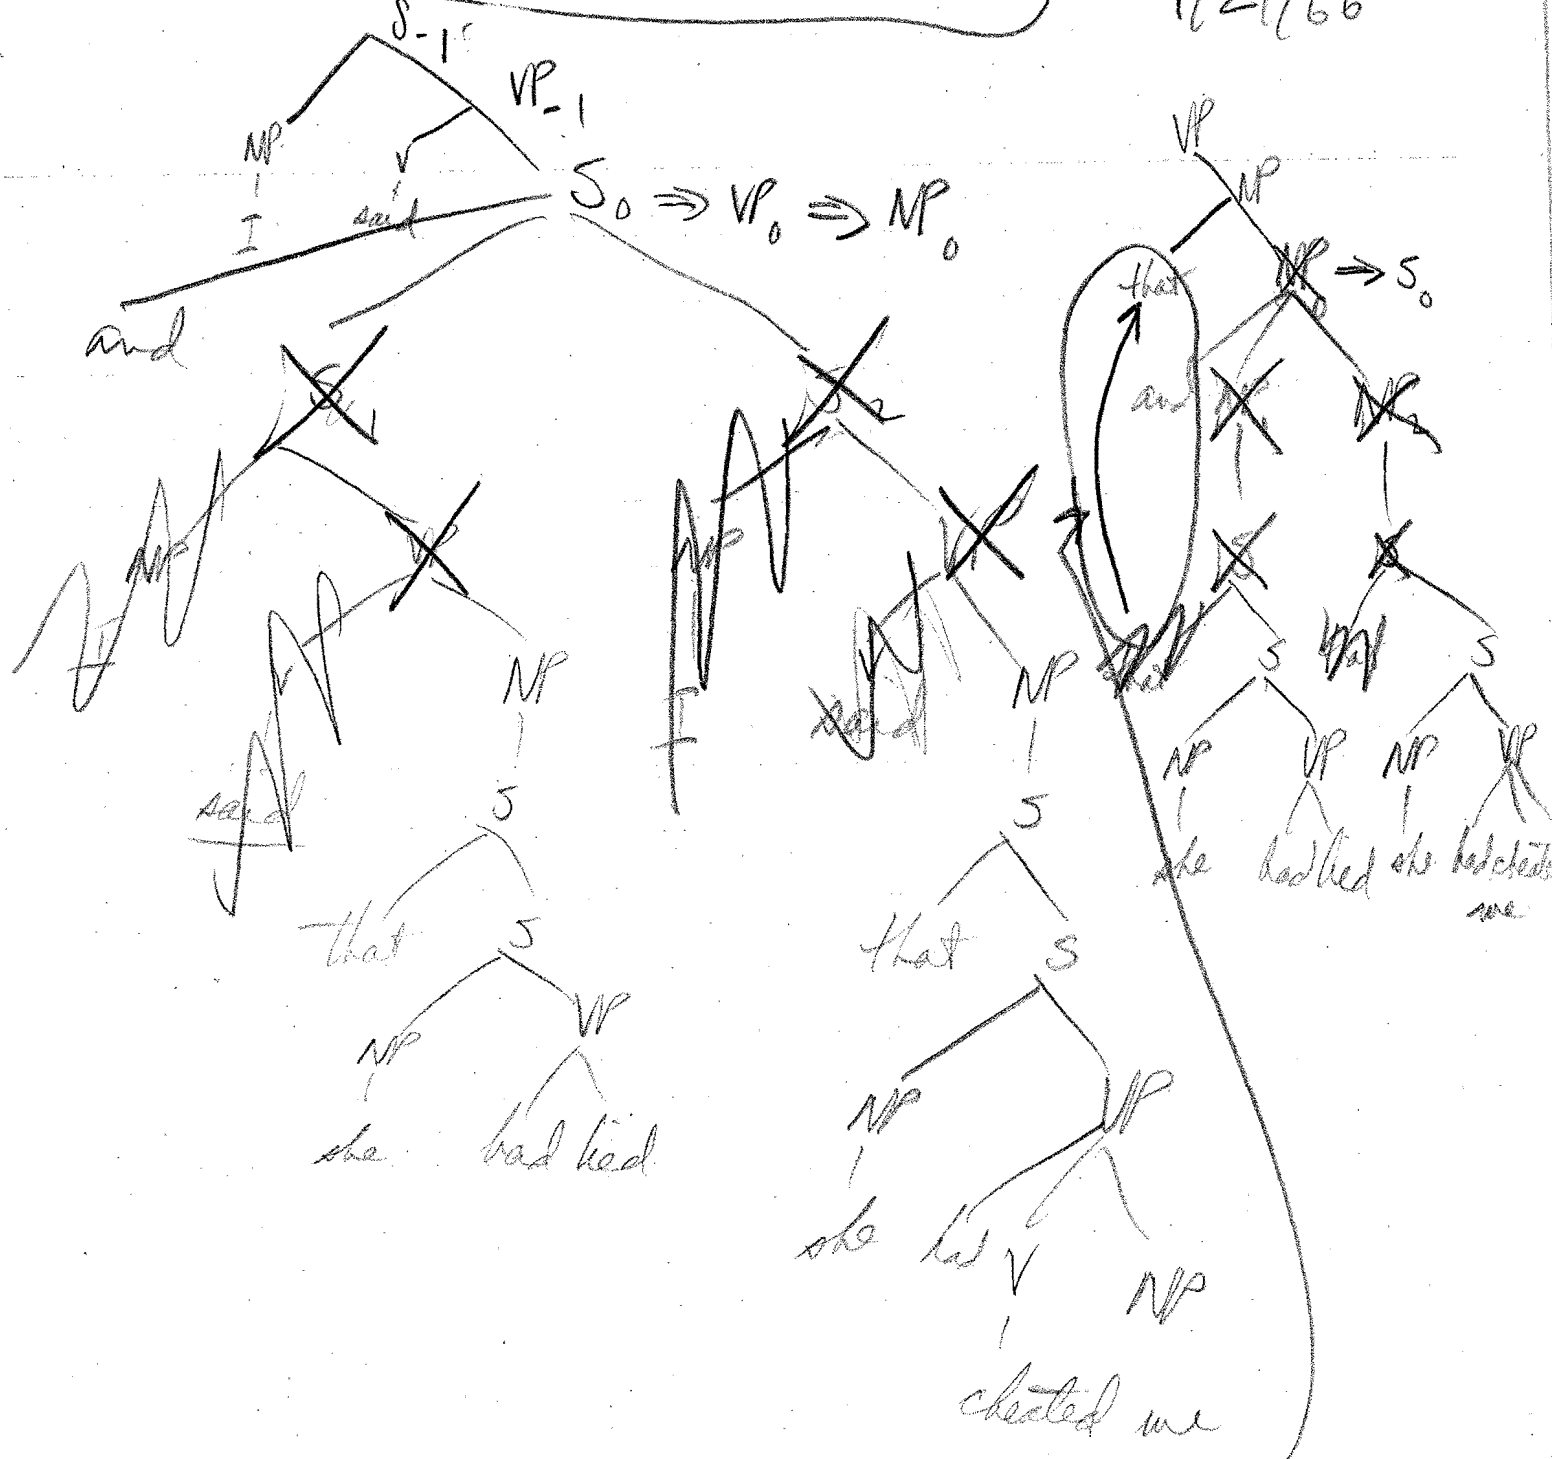 S-1
VP-1
NP
V
I
said
S0 ⇒ VP0 ⇒ NP0
and
NP
VP
I
V
NP
said
S
that
S
NP
VP
she
had lied
NP
VP
I
said
NP
S
that
S
NP
VP
she
had
V
NP
cheated me
VP
NP
that
NP0 ⇒ S0
and
NP1
NP2
S
S
that
S
that
S
NP
VP
NP
VP
she
had lied
she
had cheated
me